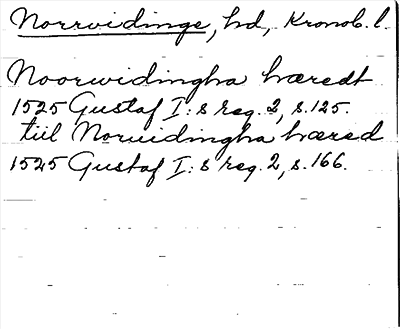 Norrvidinge, hd, Kronob. l.
Noorwidingha hæredt
1525 Gustaf I:s reg. 2, s. 125.
tiil Norvidingha hæred
1525 Gustaf I:s reg. 2, s. 166.